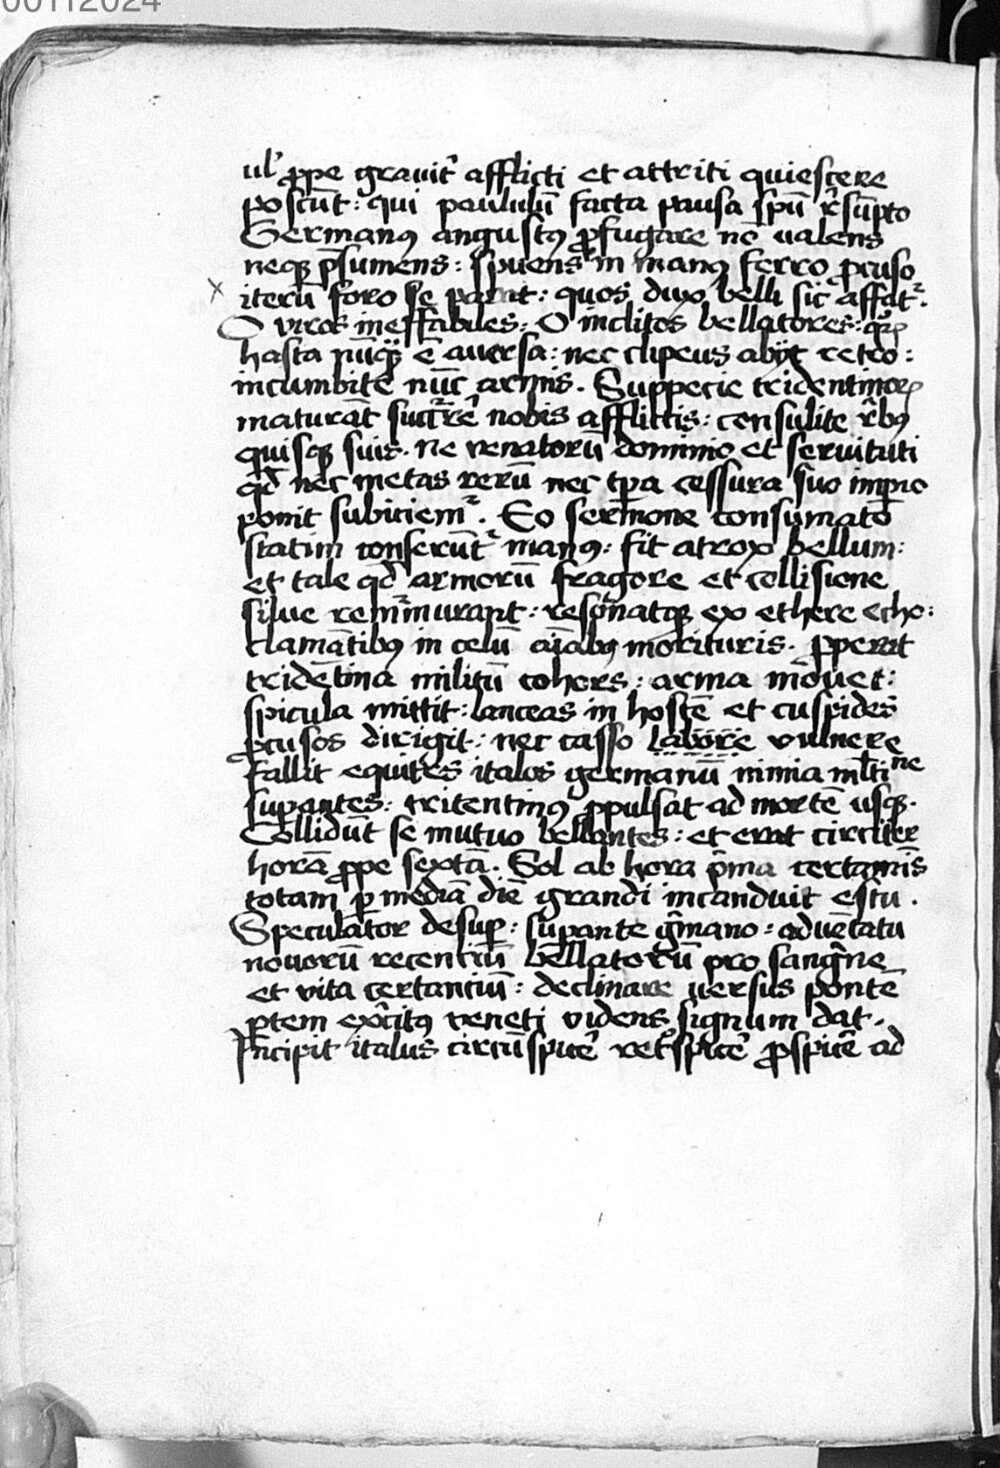 00112024
ul' ꝓpe grauit̾ afflicti et attriti quiescere
poscūt: qui paululū facta pausa sp̄u r̾sūpto
Germanꝰ angustꝰ ꝓfugare nō ualens
neqꝫ p̄sumens: spuens in manꝰ ferro ꝓcuso
x iterū foro se parat: quos dux belli sic affat᷑.
O viros ineffabiles: O inclitos bellatores: qꝛꝝ
hasta nūqꝫ ē auersa: nec clipeus abijt retro:
incumbite nūc armis. Suppecie tridentinoꝝ
maturāt succ᷑re᷑ nobis afflictis: consulite r̾bꝰ
quisqꝫ suis. ne venatorū dominio et seruituti
qd̄ nec metas rerū nec tp̄a cessura suo imp̄io
ponit subiciem᷑. Eo sermone consumato
statim conserūt᷑ manꝰ: fit atrox bellum:
et tale qd̄ armorū fragore et collisione
silue rem᷑murant: resonatqꝫ ex ethere echo:
clamātibꝰ in celū aīabꝰ morituris. ꝓperat
tridētina militū cohors: arma mouet:
spicula mittit: lanceas in hostē et cuspides
ꝓcusos dirigit: nec casso labore vulnere
fallit equites italos germanū nimia ml̄tine
suꝑantes: tritentinꝰ ꝓpulsat ad mortē usqꝫ.
Collidūt se mutuo bellantes: et erat circiter
horā ꝓpe sextā. Sol ab hora p̄ma certamīs
totam ꝑ mediā diē grandi incanduit estu.
Speculator desuꝑ: suꝑante g̾mano: aduētatu
nouorū recenciū bellatorū pro sangͥne
et vita certanciū: declinare uersus pontē
ꝑtem exc̾itꝰ veneti videns signum dat.
Incipit italus circūspice᷑ ret᷑spice᷑ ꝓspice᷑ ad